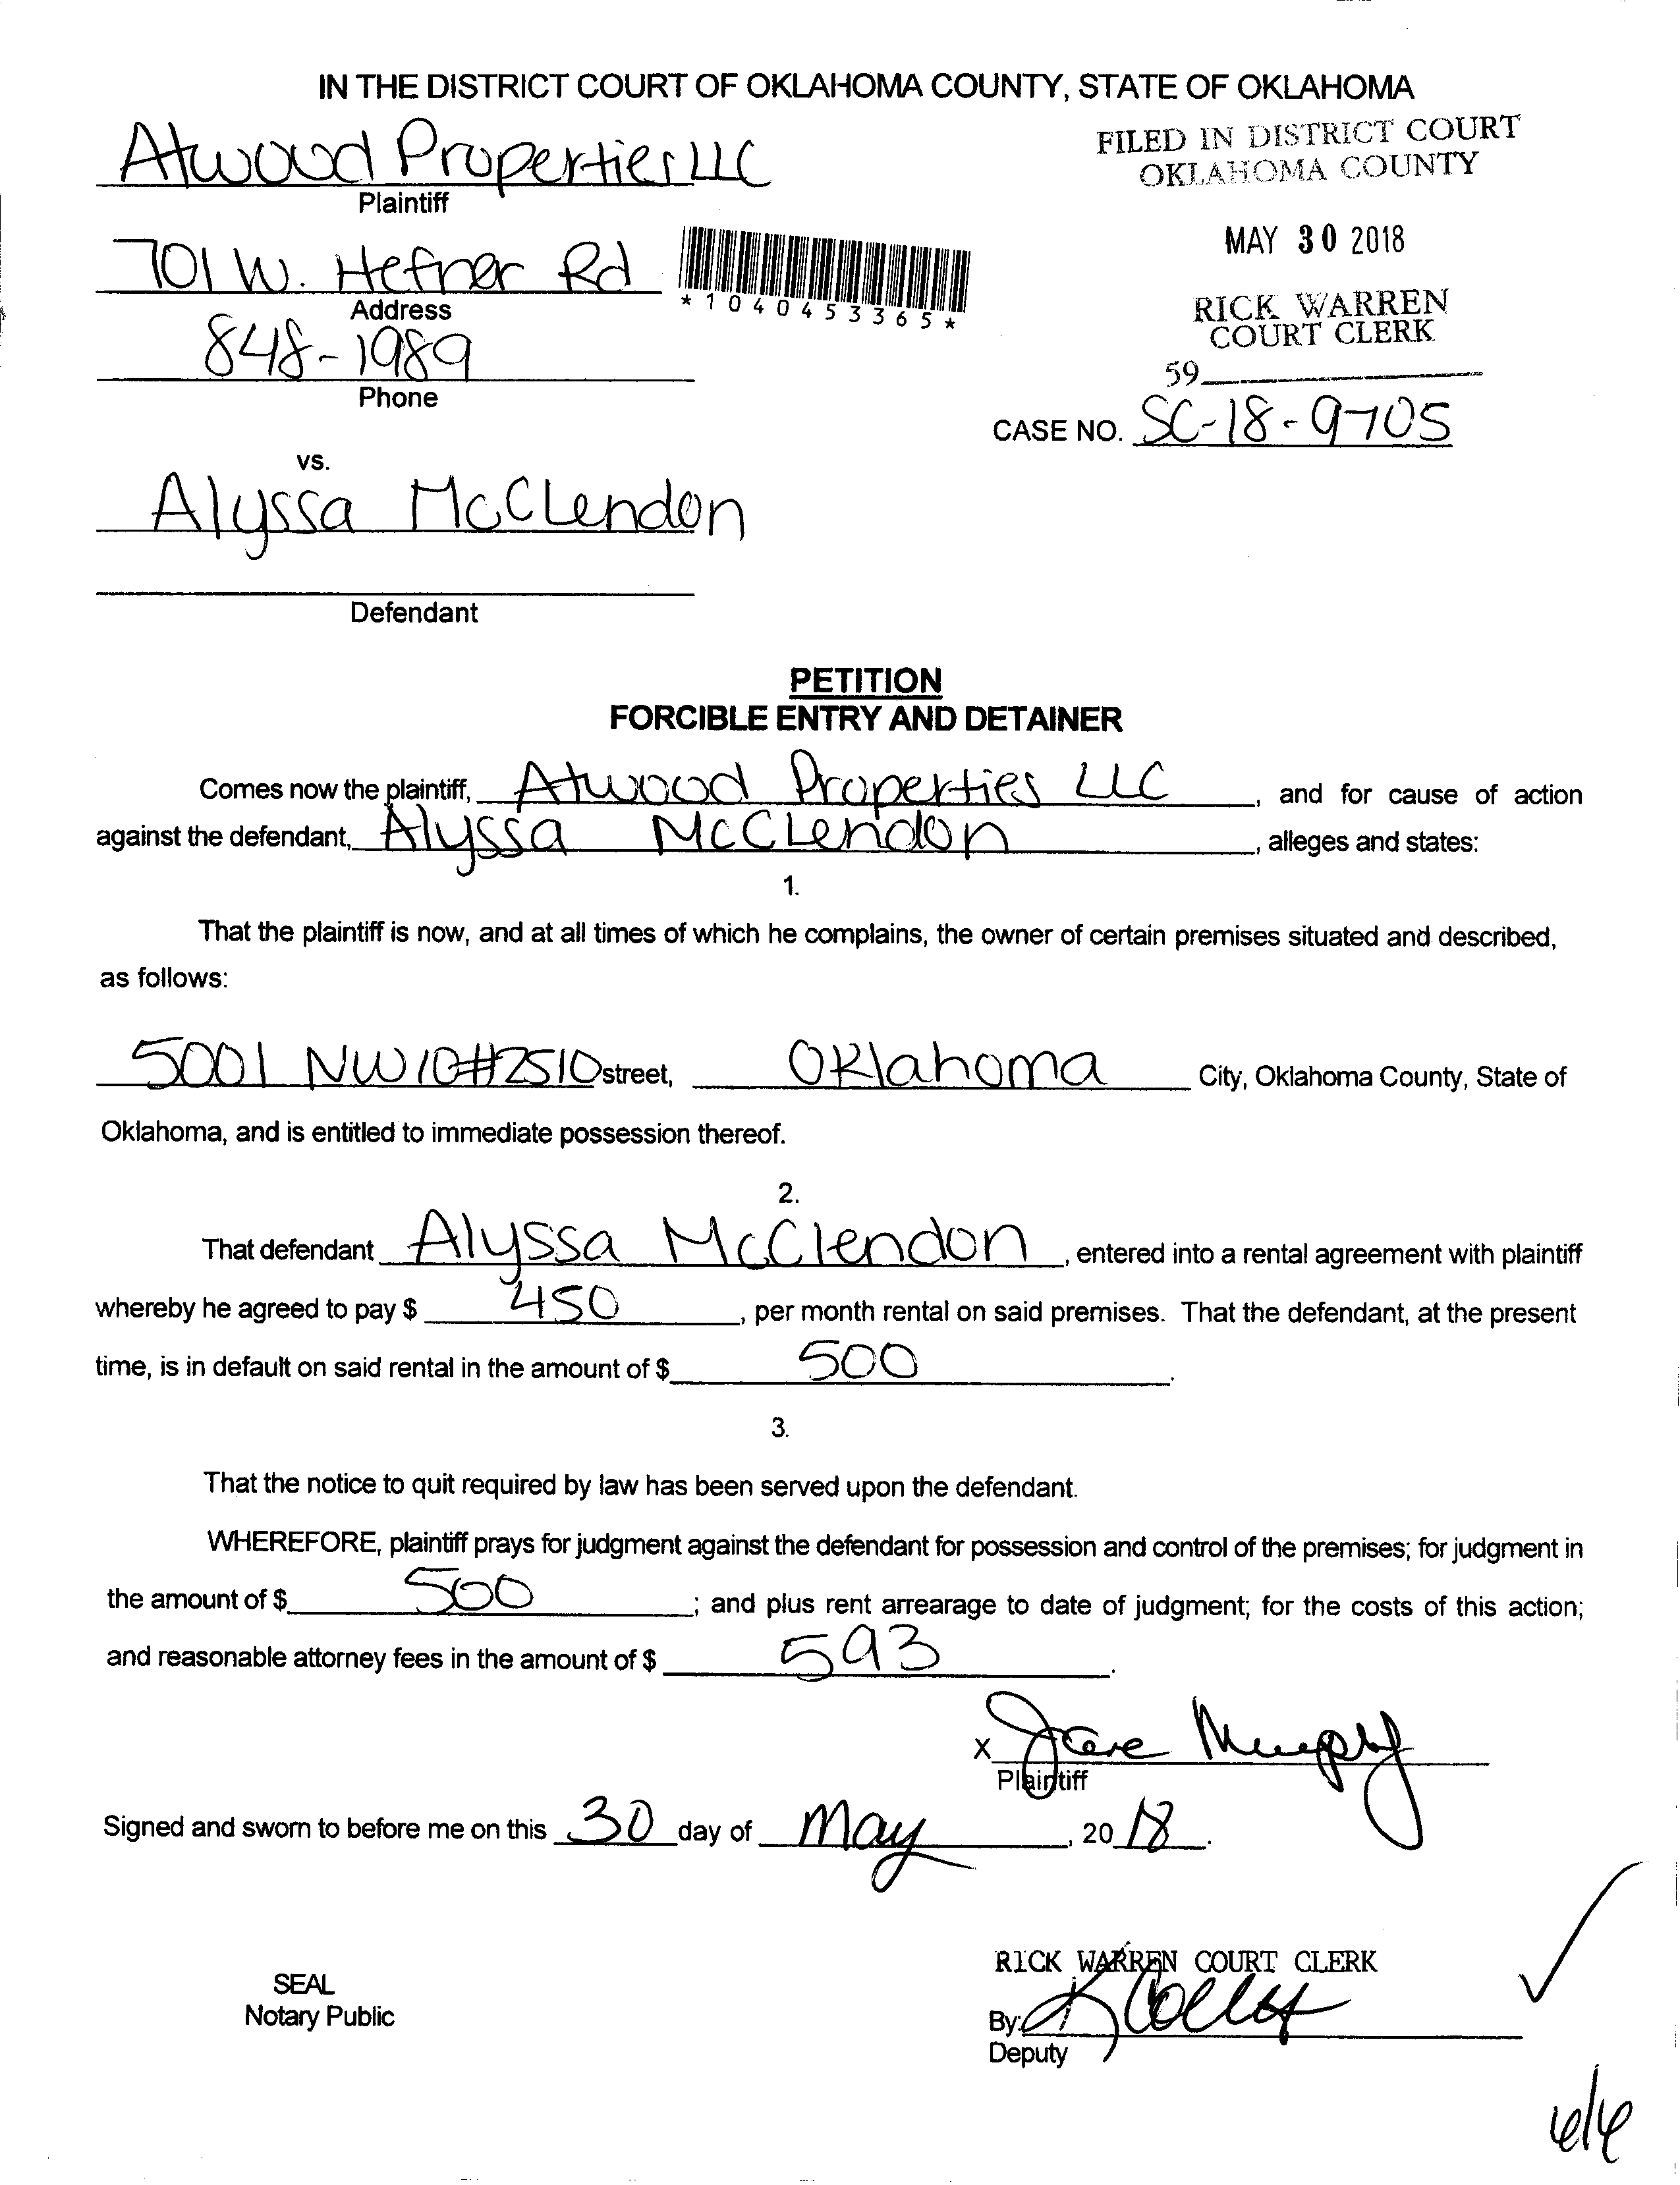 IN THE DISTRICT COURT OF OKLAHOMA COUNTY, STATE OF OKLAHOMA
Atwood Properties LLC
Plaintiff
FILED IN DISTRICT COURT
OKLAHOMA COUNTY
MAY 30 2018
RICK WARREN
COURT CLERK
59
701 W. Hefner Rd
Address
*1040453365*
848-1989
Phone
CASE NO. SC-18-9705
vs.
Alyssa McClendon
Defendant
PETITION
FORCIBLE ENTRY AND DETAINER
Comes now the plaintiff, Atwood Properties LLC, and for cause of action
against the defendant, Alyssa McClendon, alleges and states:
1.
That the plaintiff is now, and at all times of which he complains, the owner of certain premises situated and described,
as follows:
5001 NW 10 #2510 street, Oklahoma City, Oklahoma County, State of
Oklahoma, and is entitled to immediate possession thereof.
2.
That defendant Alyssa McClendon, entered into a rental agreement with plaintiff
whereby he agreed to pay $ 450, per month rental on said premises. That the defendant, at the present
time, is in default on said rental in the amount of $ 500.
3.
That the notice to quit required by law has been served upon the defendant.
WHEREFORE, plaintiff prays for judgment against the defendant for possession and control of the premises; for judgment in
the amount of $ 500; and plus rent arrearage to date of judgment; for the costs of this action;
and reasonable attorney fees in the amount of $ 593.
X Murphy
Plaintiff
Signed and sworn to before me on this 30 day of May, 2018.
RICK WARREN COURT CLERK
SEAL
Notary Public
By: K
Deputy
6/6